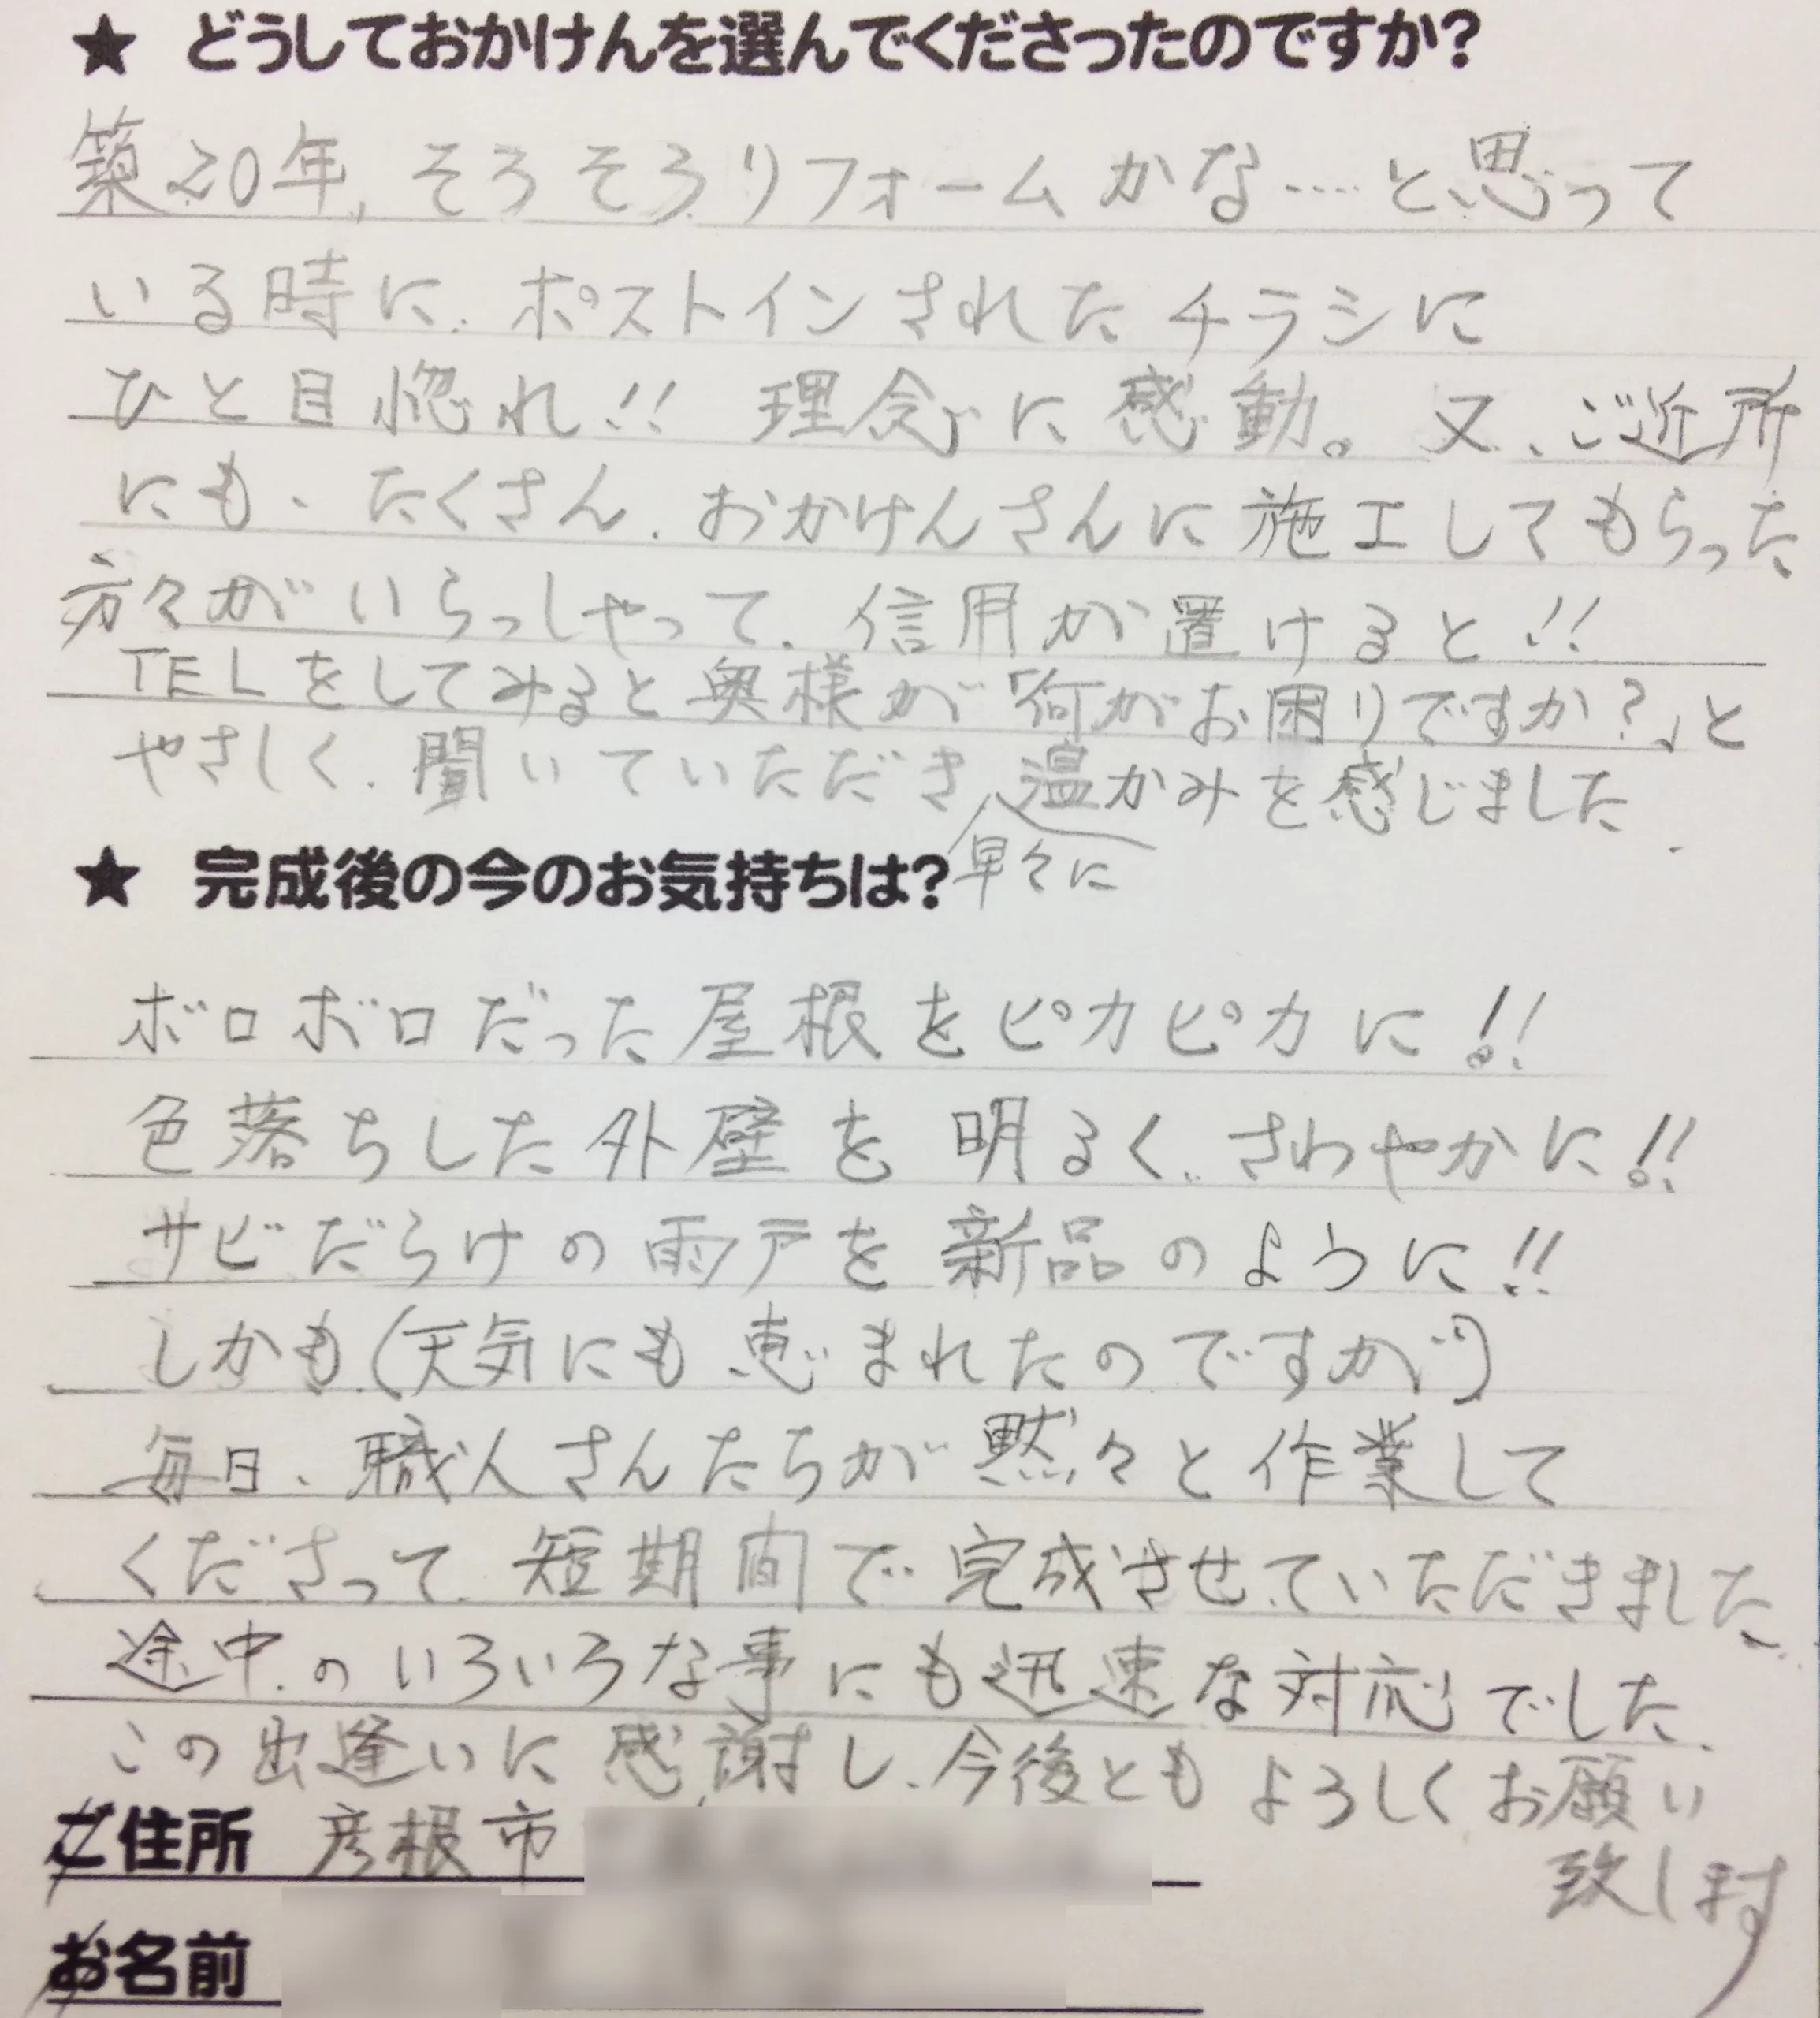 ★ どうしておかけんを選んでくださったのですか?
築20年、そろそろリフォームかな‥‥と思って
いる時に、ポストインされたチラシに
ひと目惚れ!! 理念に感動。又、ご近所
にも、たくさん、おかけんさんに施工してもらった
方々がいらっしゃって、信用が置けると!!
TELをしてみると奥様が「何がお困りですか?」と
やさしく、聞いていただき、温かみを感じました。
早々に
★ 完成後の今のお気持ちは?
ボロボロだった屋根をピカピカに!!
色落ちした外壁を明るく、さわやかに!!
サビだらけの雨戸を新品のように!!
しかも(天気にも恵まれたのですが)
毎日、職人さんたちが黙々と作業して
くださって、短期間で完成させていただきました。
途中のいろいろな事にも迅速な対応でした。
この出逢いに感謝し、今後ともよろしくお願い
致します
ご住所 彦根市
お名前